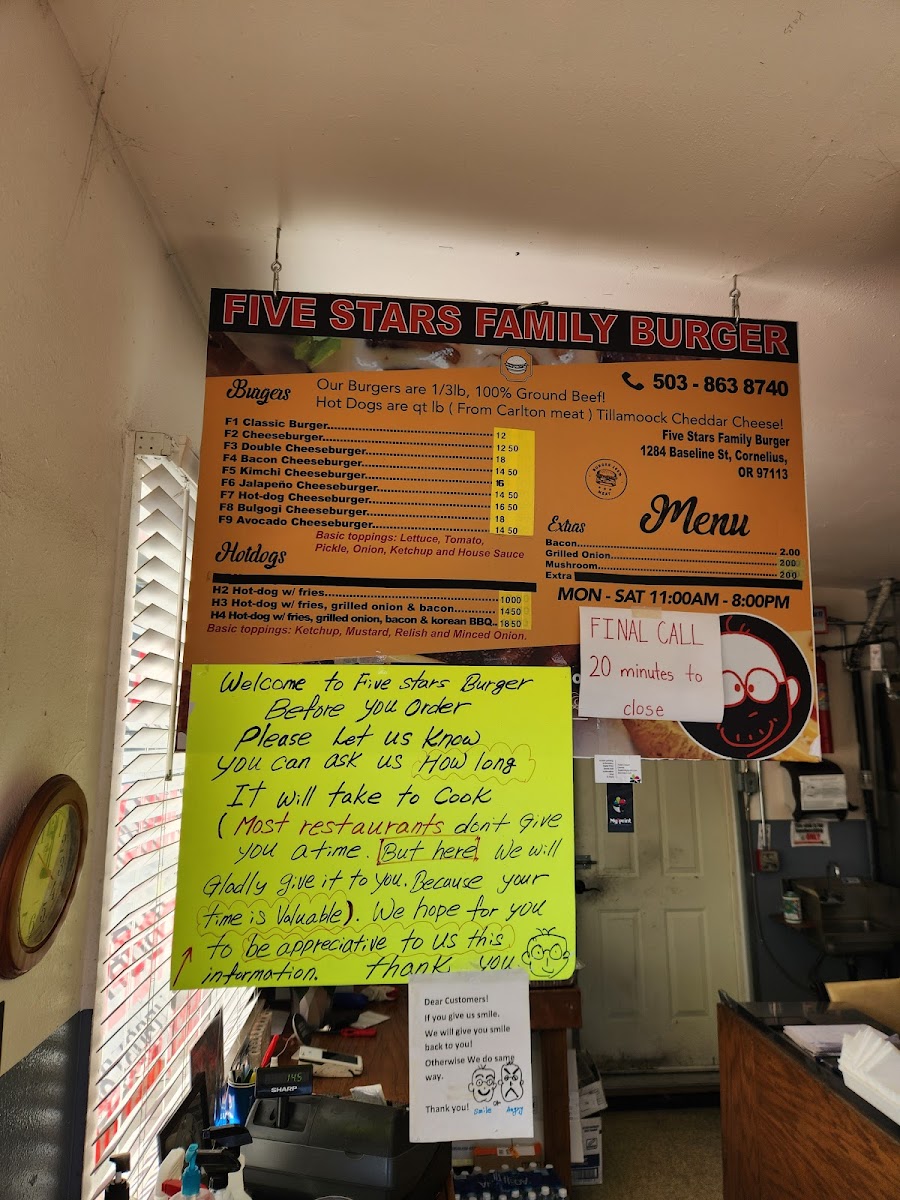 FIVE STARS FAMILY BURGER
Burgers
Our Burgers are 1/3lb, 100% Ground Beef!
Hot Dogs are qt lb ( From Carlton meat ) Tillamoock Cheddar Cheese!
503 - 863 8740
Five Stars Family Burger
1284 Baseline St, Cornelius,
OR 97113
F1 Classic Burger 12
F2 Cheeseburger 12 50
F3 Double Cheeseburger 18
F4 Bacon Cheeseburger 14 50
F5 Kimchi Cheeseburger 16
F6 Jalapeño Cheeseburger 14 50
F7 Hot-dog Cheeseburger 16 50
F8 Bulgogi Cheeseburger 18
F9 Avocado Cheeseburger 14 50
Basic toppings: Lettuce, Tomato,
Pickle, Onion, Ketchup and House Sauce
Menu
Extras
Bacon 2.00
Grilled Onion
Mushroom 200
Extra 200
Hotdogs
H2 Hot-dog w/ fries 1000
H3 Hot-dog w/ fries, grilled onion & bacon 1450
H4 Hot-dog w/ fries, grilled onion, bacon & korean BBQ 1850
Basic toppings: Ketchup, Mustard, Relish and Minced Onion.
MON - SAT 11:00AM - 8:00PM
FINAL CALL
20 minutes to
close
Welcome to Five stars Burger
Before you Order
Please Let us Know
you can ask us How long
It will take to Cook
(Most restaurants don't give
you a time. But here We will
Gladly give it to you. Because your
time is Valuable). We hope for you
to be appreciative to us this
information. Thank you
Dear Customers!
If you give us smile.
We will give you smile
back to you!
Otherwise We do same
way.
Thank you!
Smile or Angry
My point
ONLY
145
SHARP